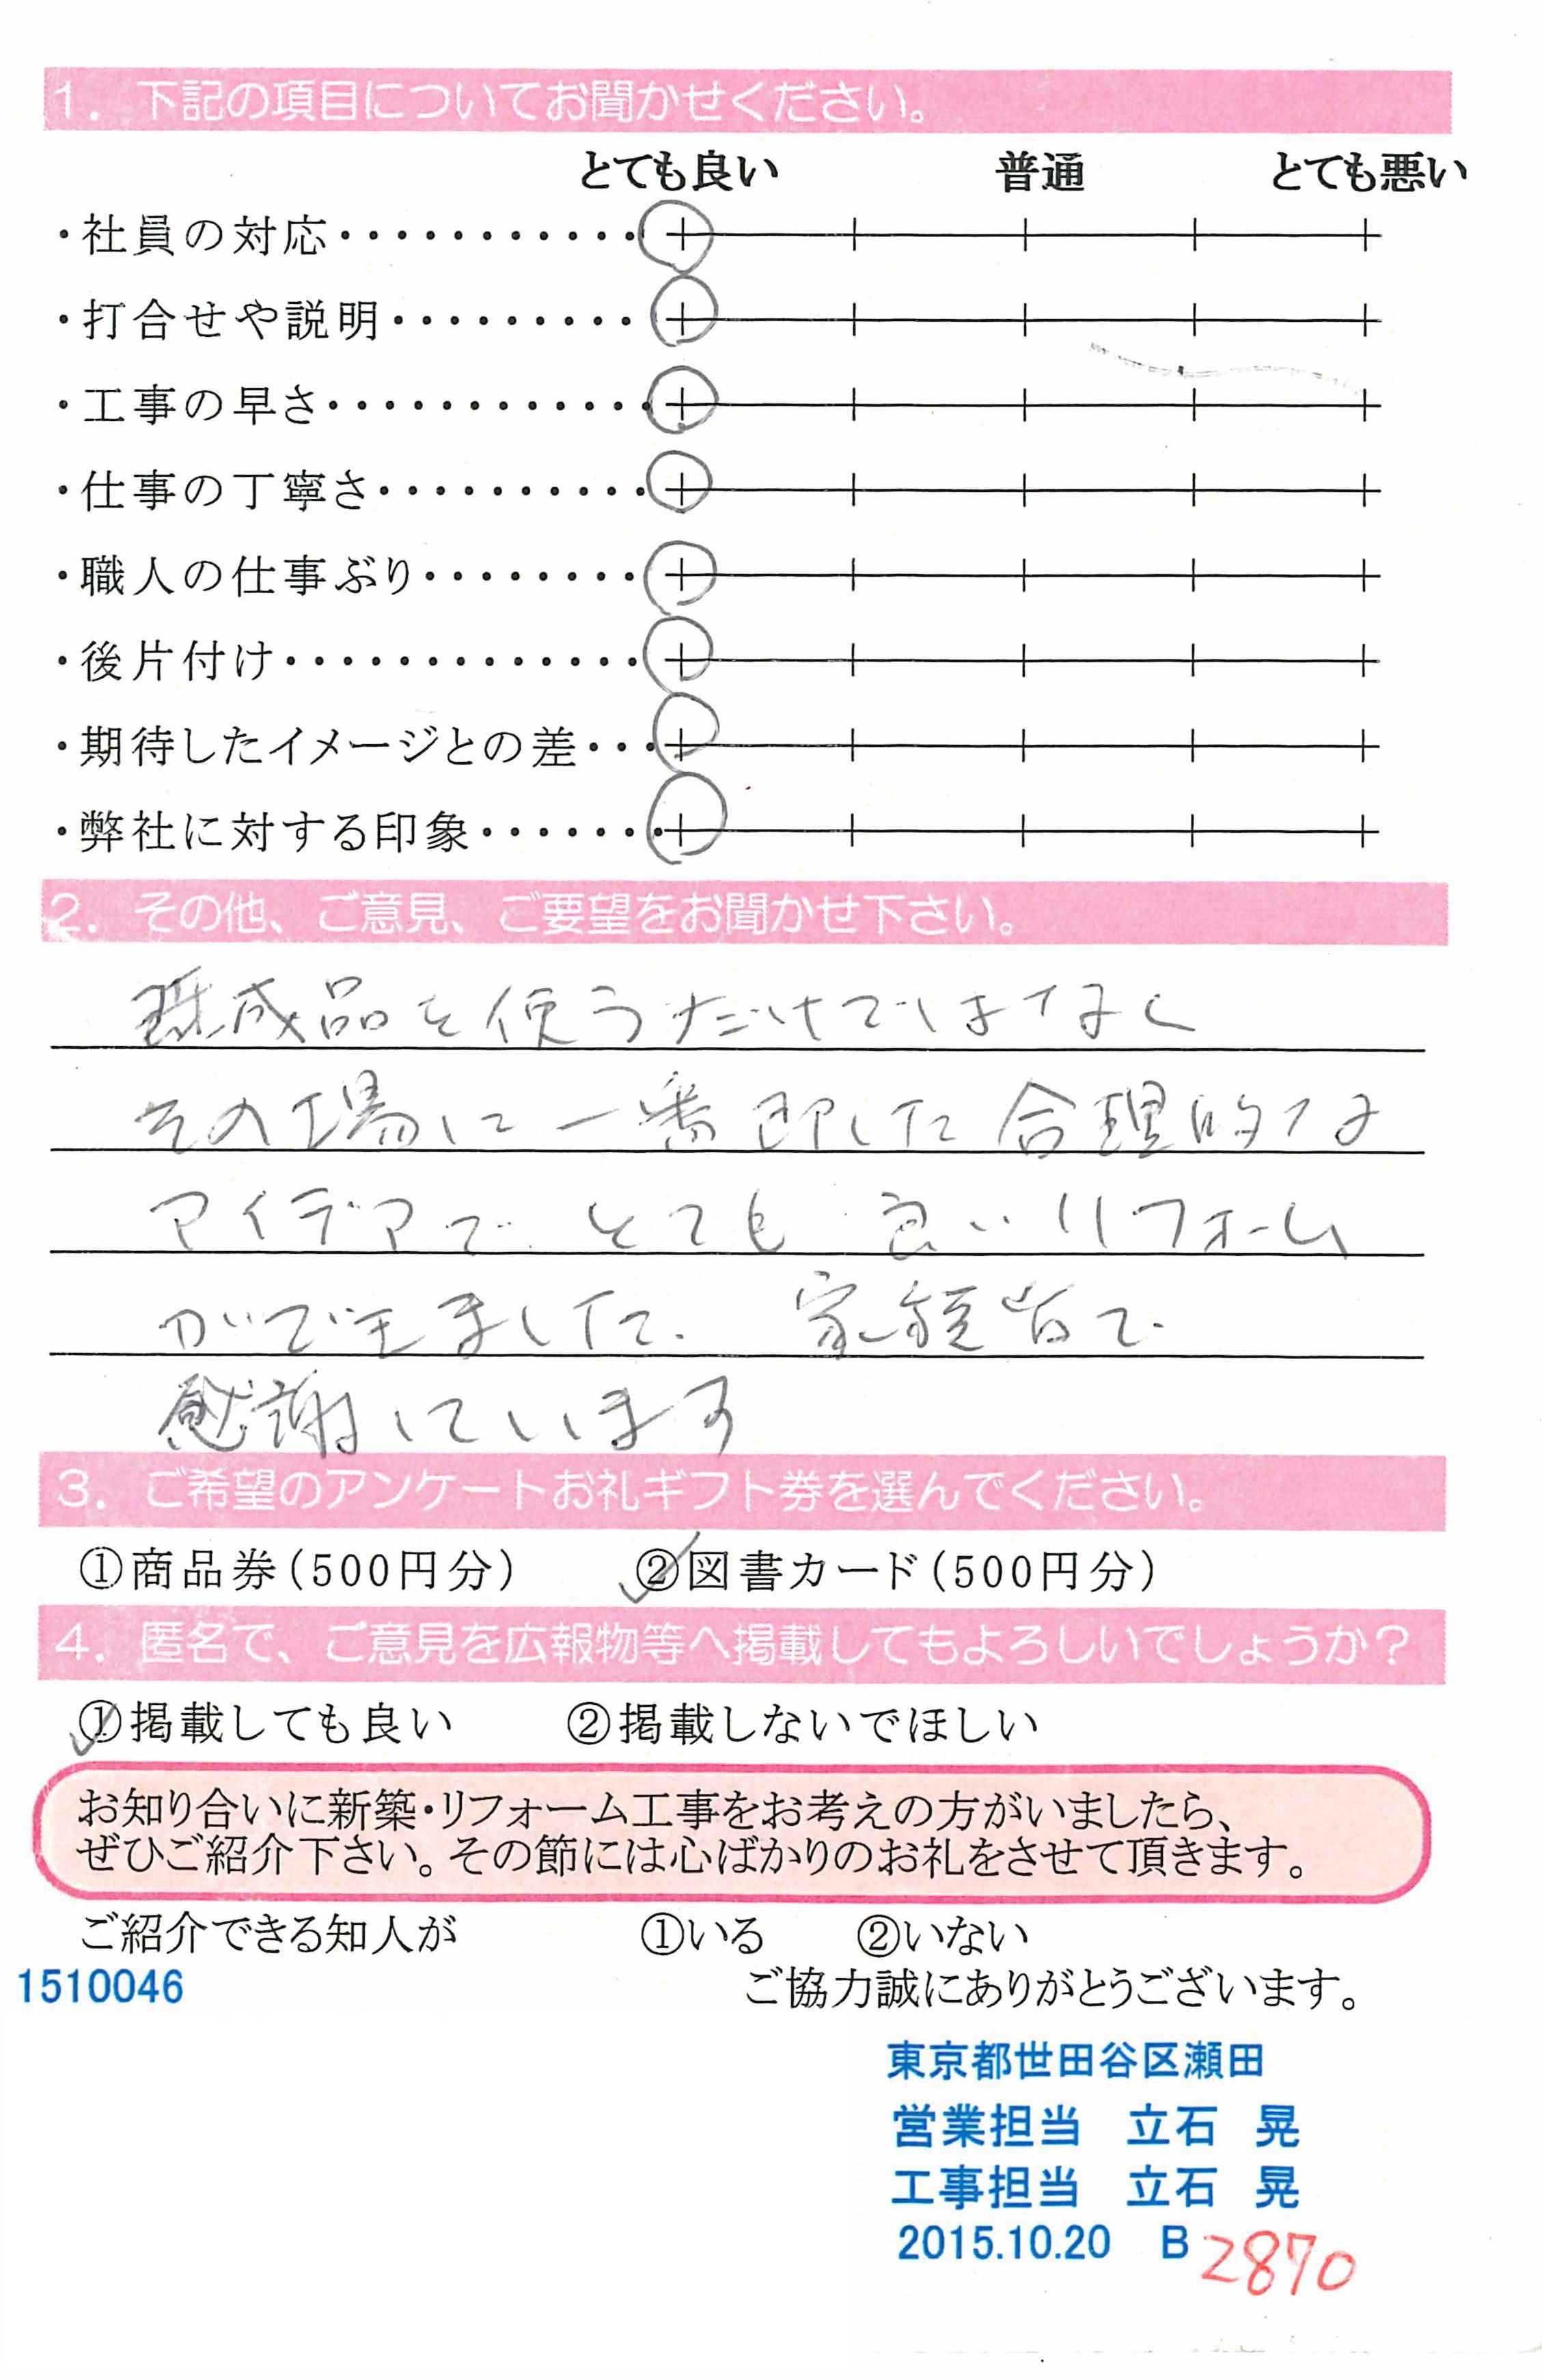 1. 下記の項目についてお聞かせください。
とても良い 普通 とても悪い
・社員の対応・・・・・・・・・・・・
・打合せや説明・・・・・・・・・
・工事の早さ・・・・・・・・・・・・
・仕事の丁寧さ・・・・・・・・・・
・職人の仕事ぶり・・・・・・・・
・後片付け・・・・・・・・・・・・・
・期待したイメージとの差・・・
・弊社に対する印象・・・・・・・
2. その他、ご意見、ご要望をお聞かせ下さい。
既成品を使うだけではなく
その場に一番即した合理的な
アイデアで とても 良いリフォーム
ができました。 家族皆で
感謝しています
3. ご希望のアンケートお礼ギフト券を選んでください。
①商品券(500円分) ②図書カード(500円分)
4. 匿名で、ご意見を広報物等へ掲載してもよろしいでしょうか?
①掲載しても良い ②掲載しないでほしい
お知り合いに新築・リフォーム工事をお考えの方がいましたら、
ぜひご紹介下さい。その節には心ばかりのお礼をさせて頂きます。
ご紹介できる知人が ①いる ②いない
1510046 ご協力誠にありがとうございます。
東京都世田谷区瀬田
営業担当 立石 晃
工事担当 立石 晃
2015.10.20 B 2870